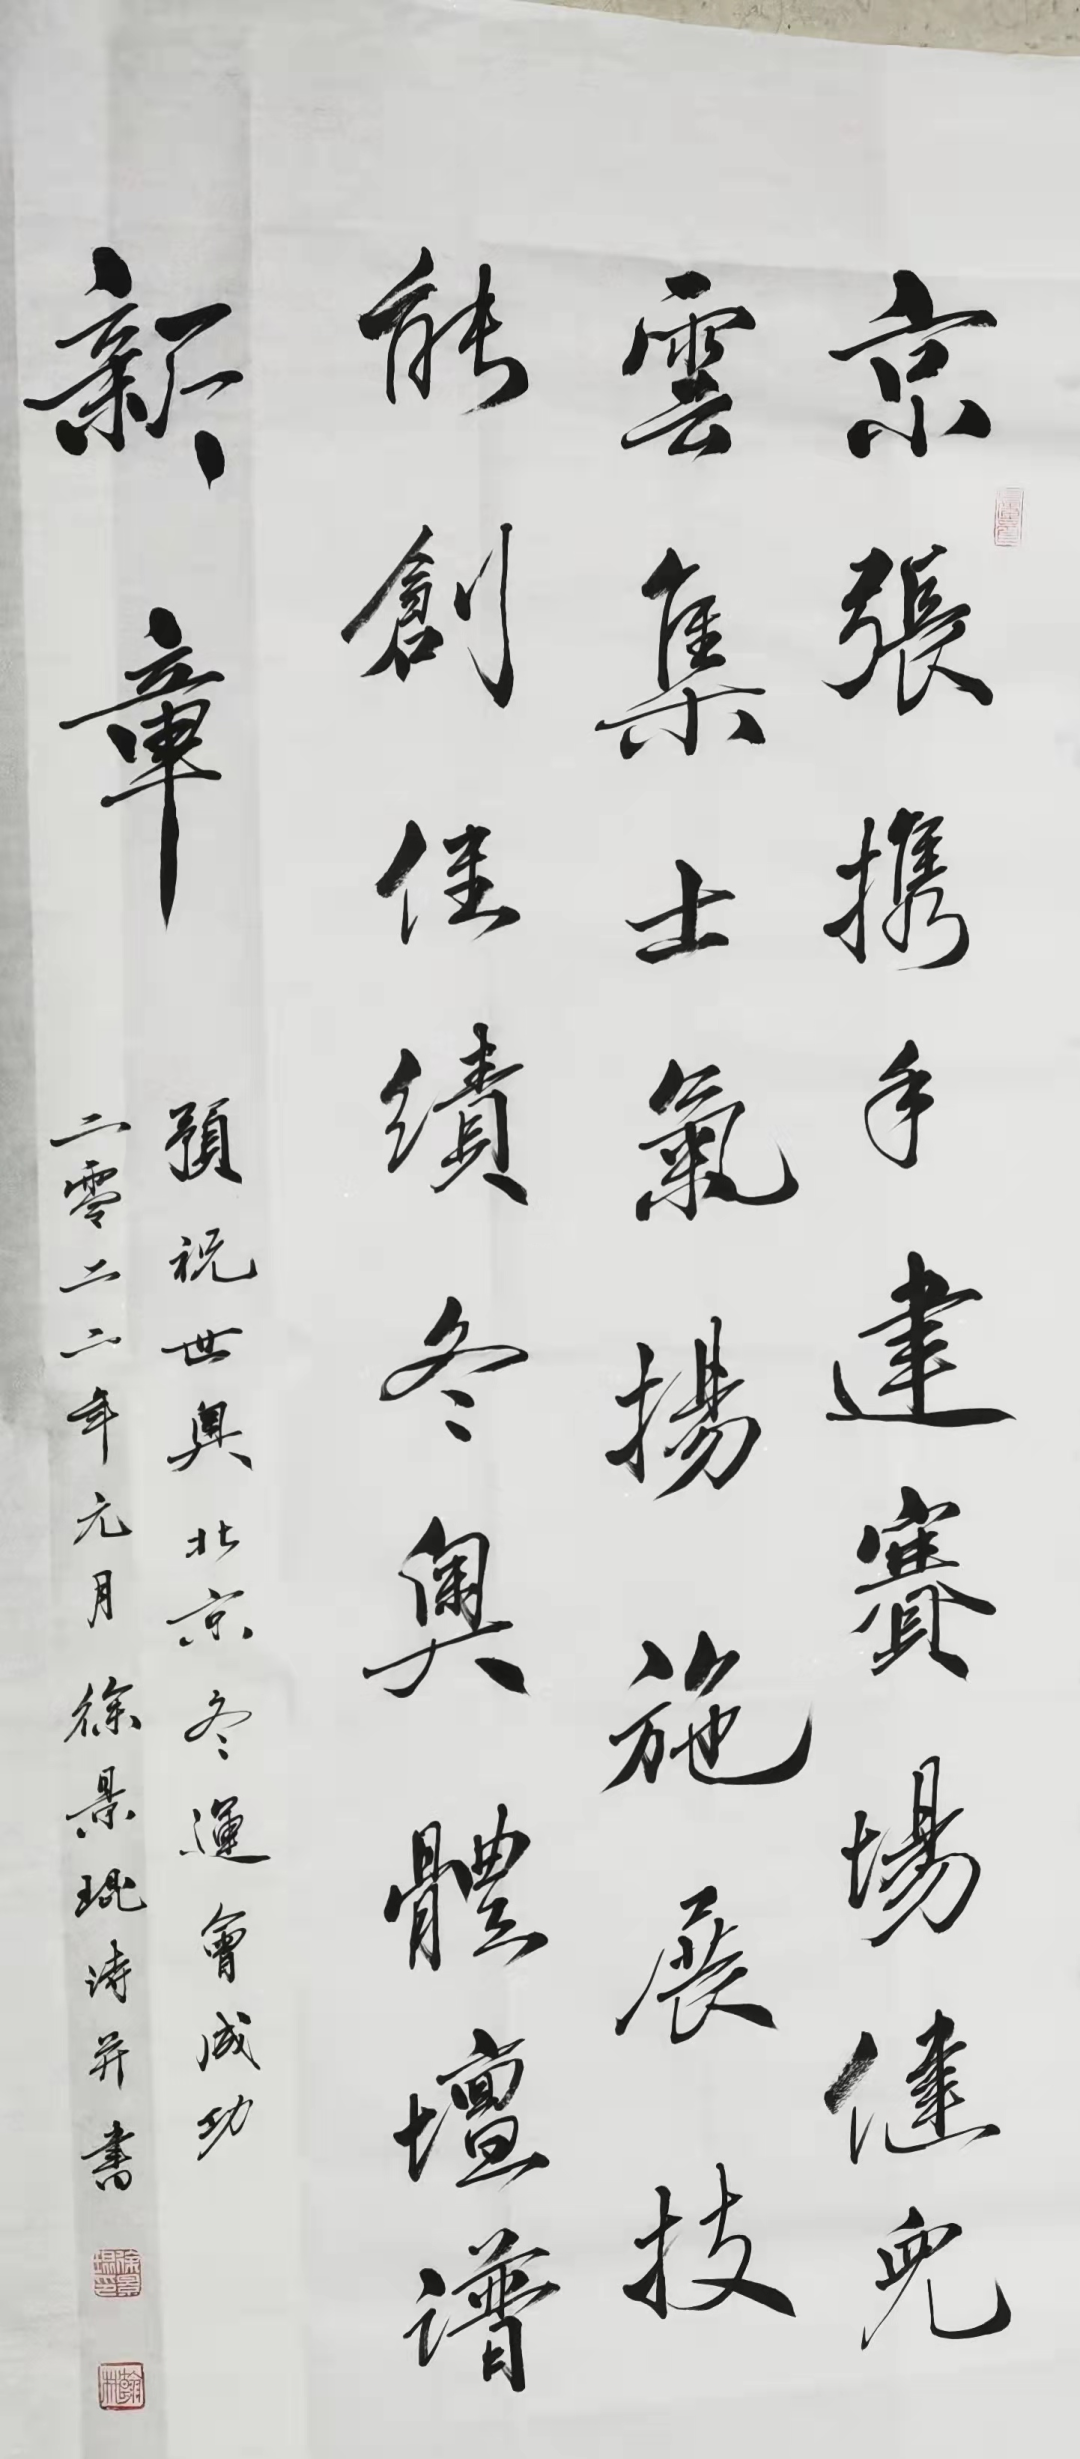 京張携手建賽場健兒
雲集士氣揚施展技
能創佳績冬奧體壇譜
新章
預祝世奧北京冬運會成功
二零二二年元月徐景琨诗并書